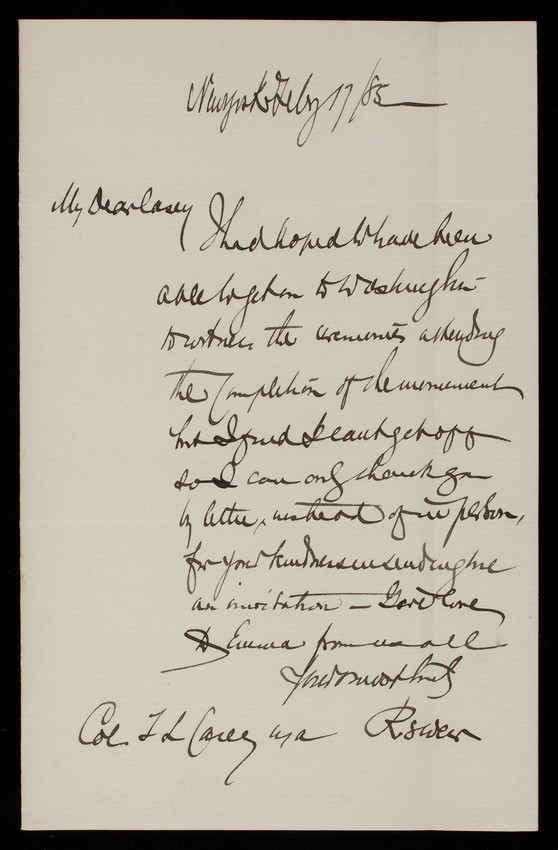 New York Feby 17/85
My Dear Casey
I had hoped to have been
able to get on to Washington
to witness the ceremonies attending
the Completion of the monument
but I find I cant get off
so I can only thank you
by letter, instead of in person,
for your kindness in sending me
an invitation – Give love
to Emma from us all
Yours most truly
Col T L Casey usa